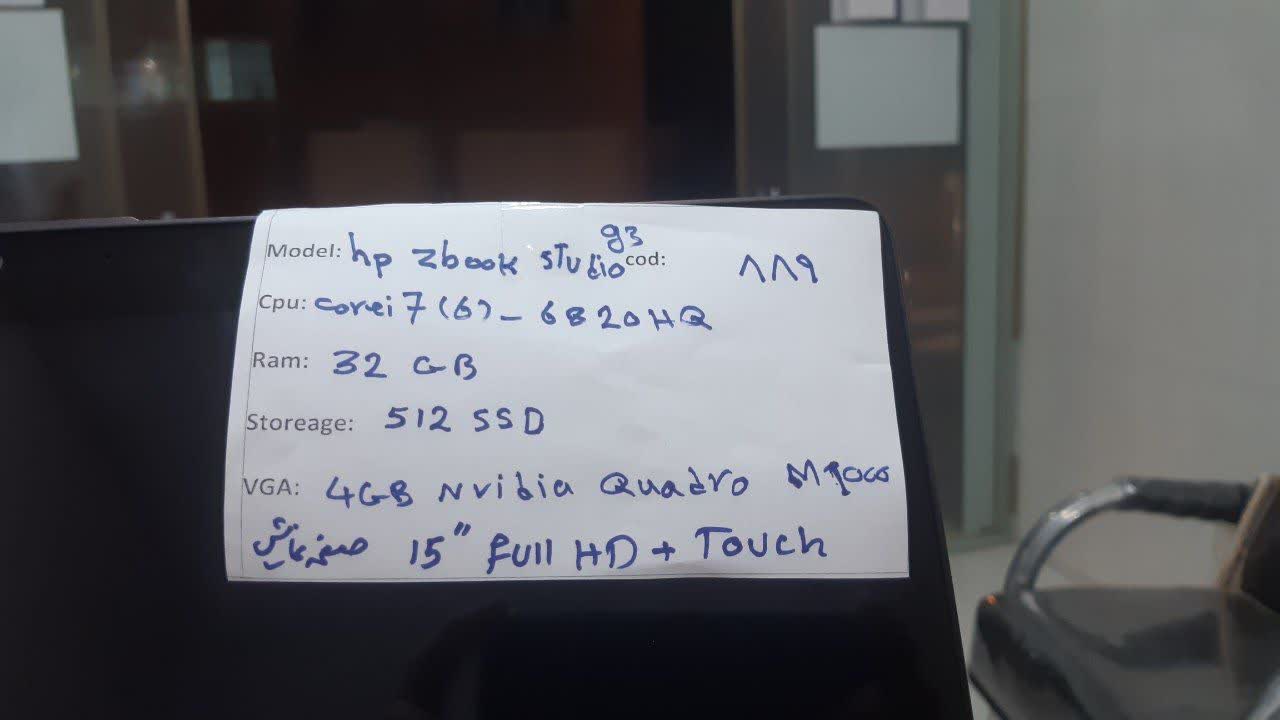 Model: hp zbook studio g3 cod: ۸۸۹
Cpu: corei7 (6) - 6820HQ
Ram: 32 GB
Storeage: 512 SSD
VGA: 4GB Nvidia Quadro M1000
صفحه نمایش 15" full HD + Touch